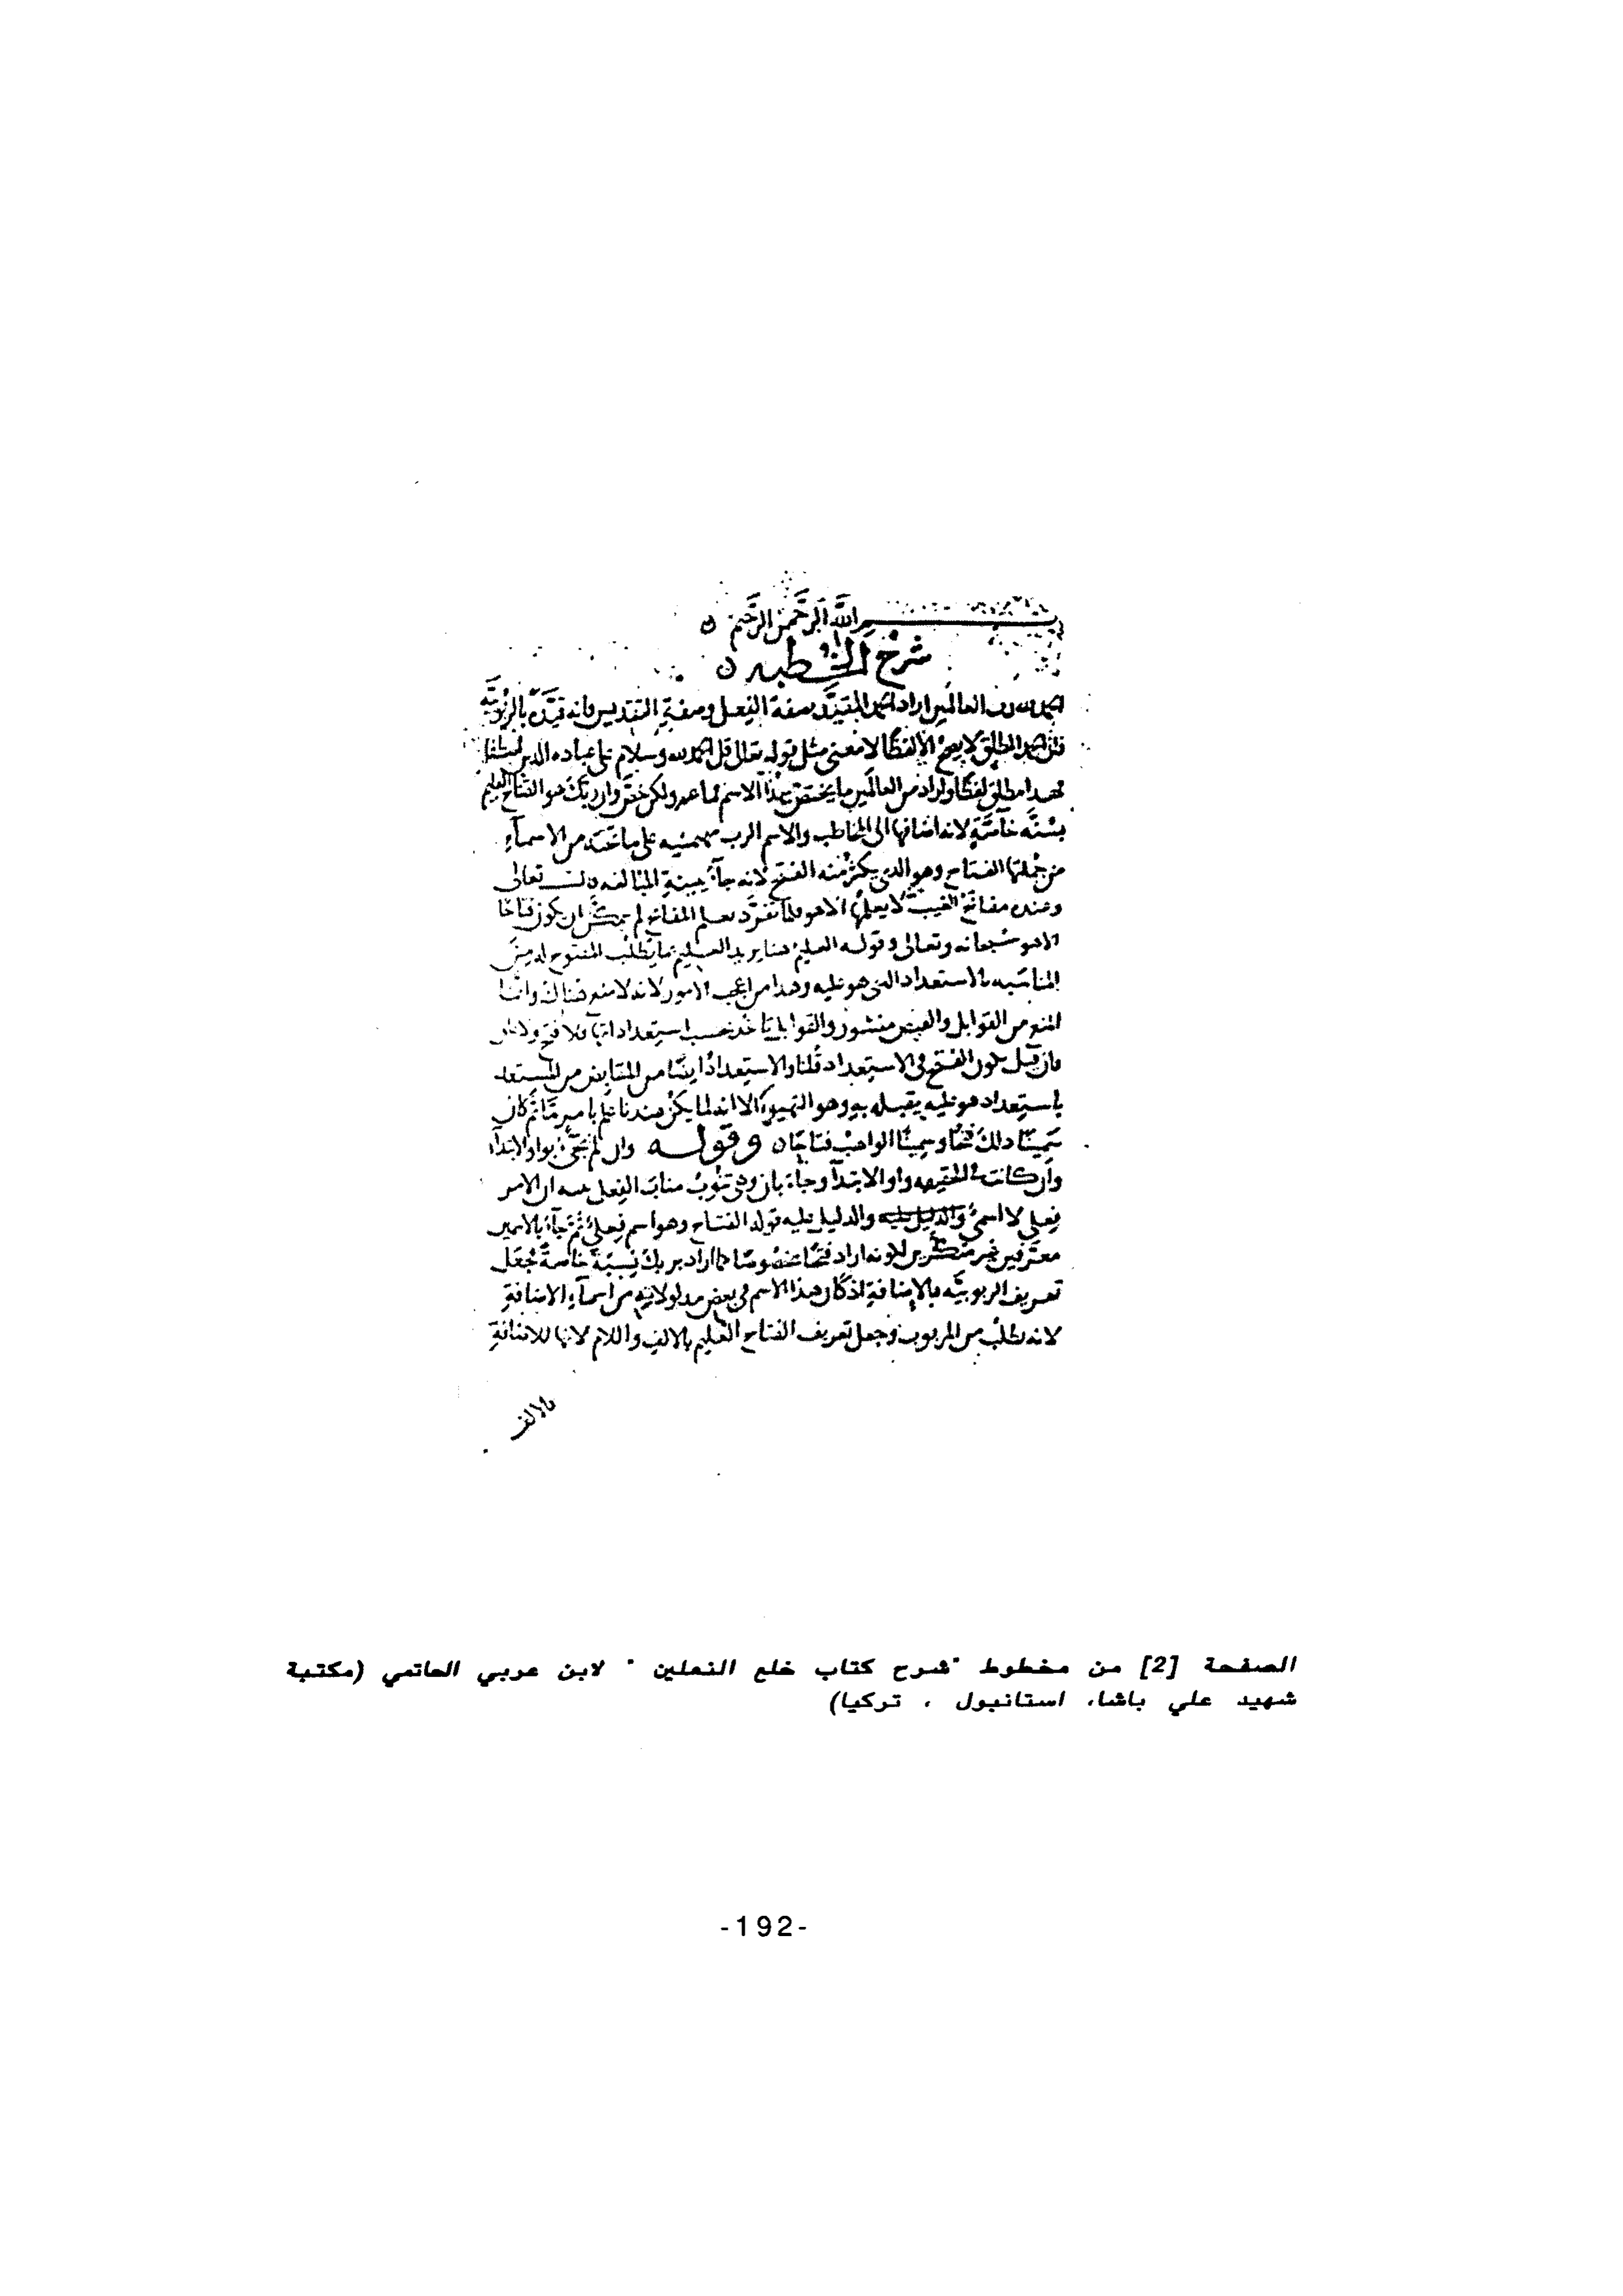 بسم الله الرحمن الرحيم
شرح الخطبه
الحمد لله رب العالمين اراد الحمد المقيد بصفة الفعل وصفة التقديس فانه قيده بالربوبية
فان الحمد المطلق لا يصح الا لفظا لا معنى مثل قوله تعالى قل الحمد لله وسلام على عباده الذين اصطفى
فهذا مطلق لفظا واراد من العالمين ما يختص بهذا الاسم لما عم ولكن خص وان ربك هو الفتاح العليم
خاصة لانه اضافها الى المخاطب والاسم الرب مهيمنيه على ما تحته من الاسماء
من جملتها الفتاح وهو الذي يكثر منه الفتح لانه جاء ببنية المبالغه قال تعالى
وعنده مفاتح الغيب لا يعلمها الا هو فلما تفرد بعلم المفاتح لم يمكن ان يكون فتاحا
الا هو سبحانه وتعالى وقوله العليم هنا يريد العليم بما يطلب المفتوح له من
المناسبه بالاستعداد الذي هو عليه وهذا من اعجب الامور لانه لا منع هناك وانما
المنع من القوابل والفيض منشور والقوابل تاخذ بحسب استعداداتها فلا فتح ولا
فان قيل يكون الفتح في الاستعداد قلنا والاستعداد ايضا من القابض من المستعد
باستعداد هو عليه يقبله به وهو التهيؤ الا انه لما لم يكن عندنا علم بامر ما ثم كان
سمينا ذلك فتحا وسمينا الواهب فتاحا وقوله وان لم يجئ بواو الابتداء
وان كانت في الحقيقه واو الابتداء وجاء بان وهي تنوب مناب الفعل ان الامر
فعلي لا اسمي والدليل عليه والدليل عليه قوله الفتاح وهو اسم فعلي ثم جاء بالاسمين
معرفين غير منكرين لكونه اراد فتحا مخصوصا كما اراد بربك نسبة خاصة فجعل
تعريف الربوبيه بالاضافة اذ كان هذا الاسم في بعض مدلولاته من اسماء الاضافة
لانه يطلب من المربوب وجعل تعريف الفتاح العليم بالالف واللام لانها للاضافة
بالالف
الصفحة [2] من مخطوط "شرح كتاب خلع النعلين " لابن عربي الحاتمي (مكتبة
شهيد علي باشا، استانبول ، تركيا)
-192-